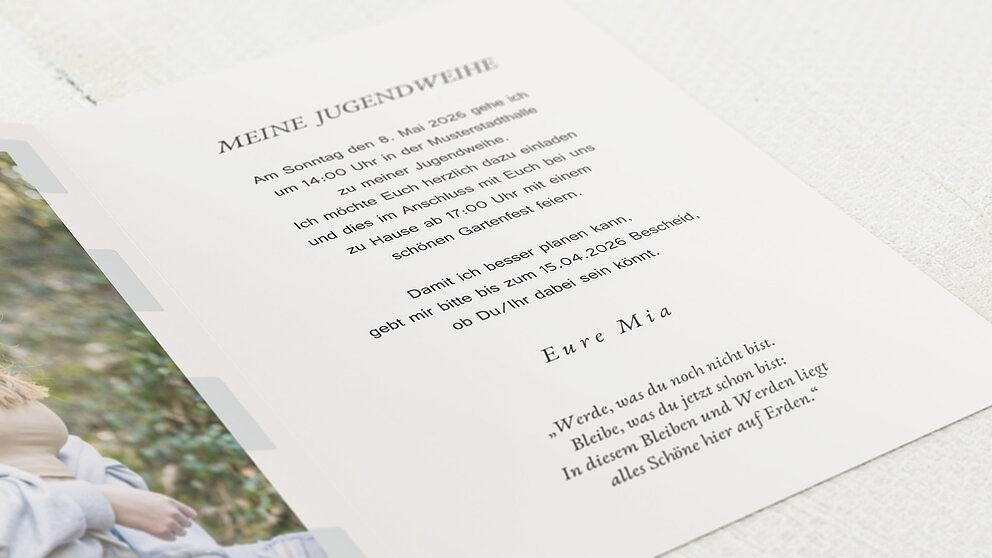 MEINE JUGENDWEIHE
Am Sonntag den 8. Mai 2026 gehe ich
um 14:00 Uhr in der Musterstadthalle
zu meiner Jugendweihe.
Ich möchte Euch herzlich dazu einladen
und dies im Anschluss mit Euch bei uns
zu Hause ab 17:00 Uhr mit einem
schönen Gartenfest feiern.
Damit ich besser planen kann,
gebt mir bitte bis zum 15.04.2026 Bescheid,
ob Du/Ihr dabei sein könnt.
Eure Mia
„Werde, was du noch nicht bist.
Bleibe, was du jetzt schon bist:
In diesem Bleiben und Werden liegt
alles Schöne hier auf Erden.“